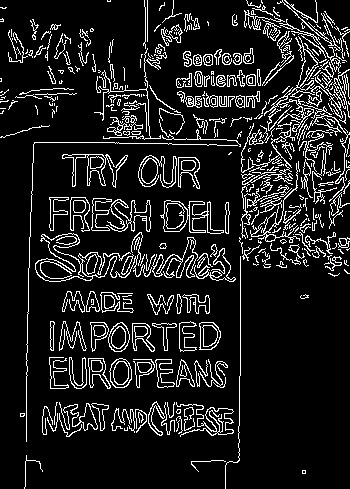 Seafood
and Oriental
Restaurant
TRY OUR
FRESH DELI
Sandwiche's
MADE WITH
IMPORTED
EUROPEANS
MEAT AND CHEESE